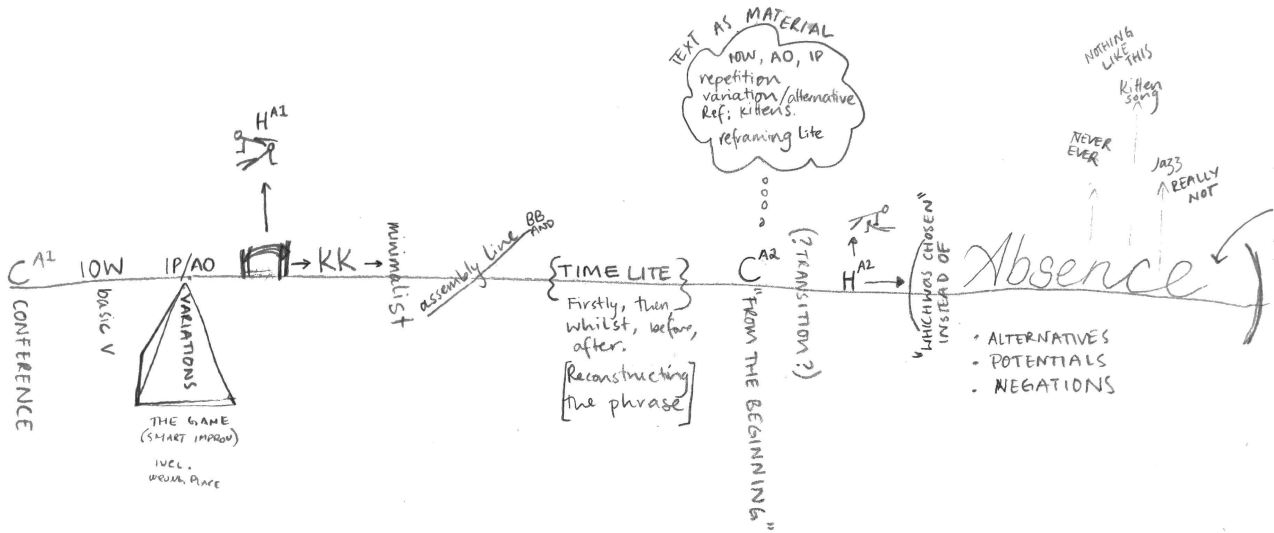 C A1
CONFERENCE
IOW
basic V
IP/AO
VARIATIONS
THE GAME
(SMART IMPROV)
INCL.
WRONG PLACE
H A1
KK
minimalist
assembly line
BB
AND
{TIME LITE}
Firstly, then
whilst, before,
after.
[Reconstructing
the phrase]
TEXT AS MATERIAL
IOW, AO, IP
repetition
variation/alternative
Ref: kittens.
reframing Lite
C A2
"FROM THE BEGINNING"
(?TRANSITION?)
H A2
("WHICH WAS CHOSEN"
"INSTEAD OF
Absence
)
• ALTERNATIVES
• POTENTIALS
• NEGATIONS
NEVER
EVER
NOTHING
LIKE THIS
Kitten
song
Jazz
REALLY
NOT